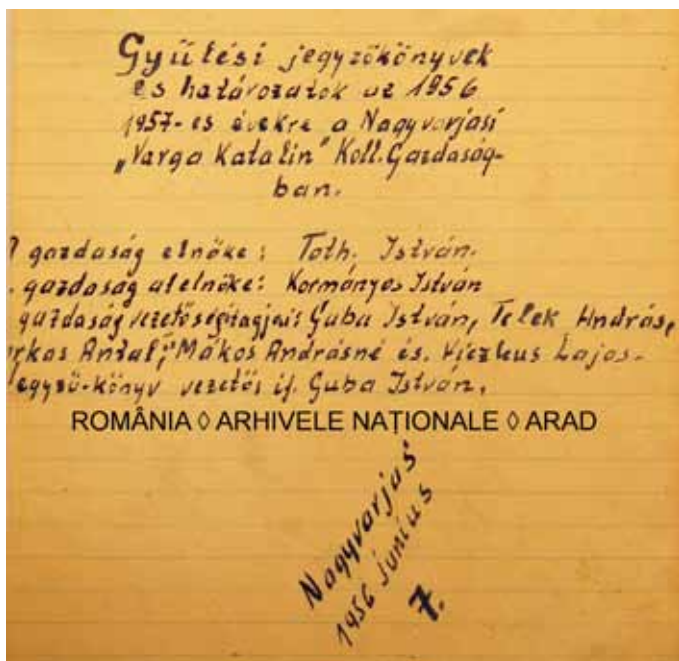 Gyűlési jegyzőkönyvek
és határozatok az 1956
1957-es évekre a Nagyvarjasi
„Varga Katalin" Koll. Gazdaság-
ban.
gazdaság elnöke: Toth. István.
gazdaság alelnöke: Kormányos István
gazdaság vezetőségi tagjai: Guba István, Telek András,
rkas Antal, Mákos Andrásné és. Lajos.
egyző-könyv vezető: if. Guba István.
ROMÂNIA ◊ ARHIVELE NAȚIONALE ◊ ARAD
Nagyvarjas
1956 Június
7.